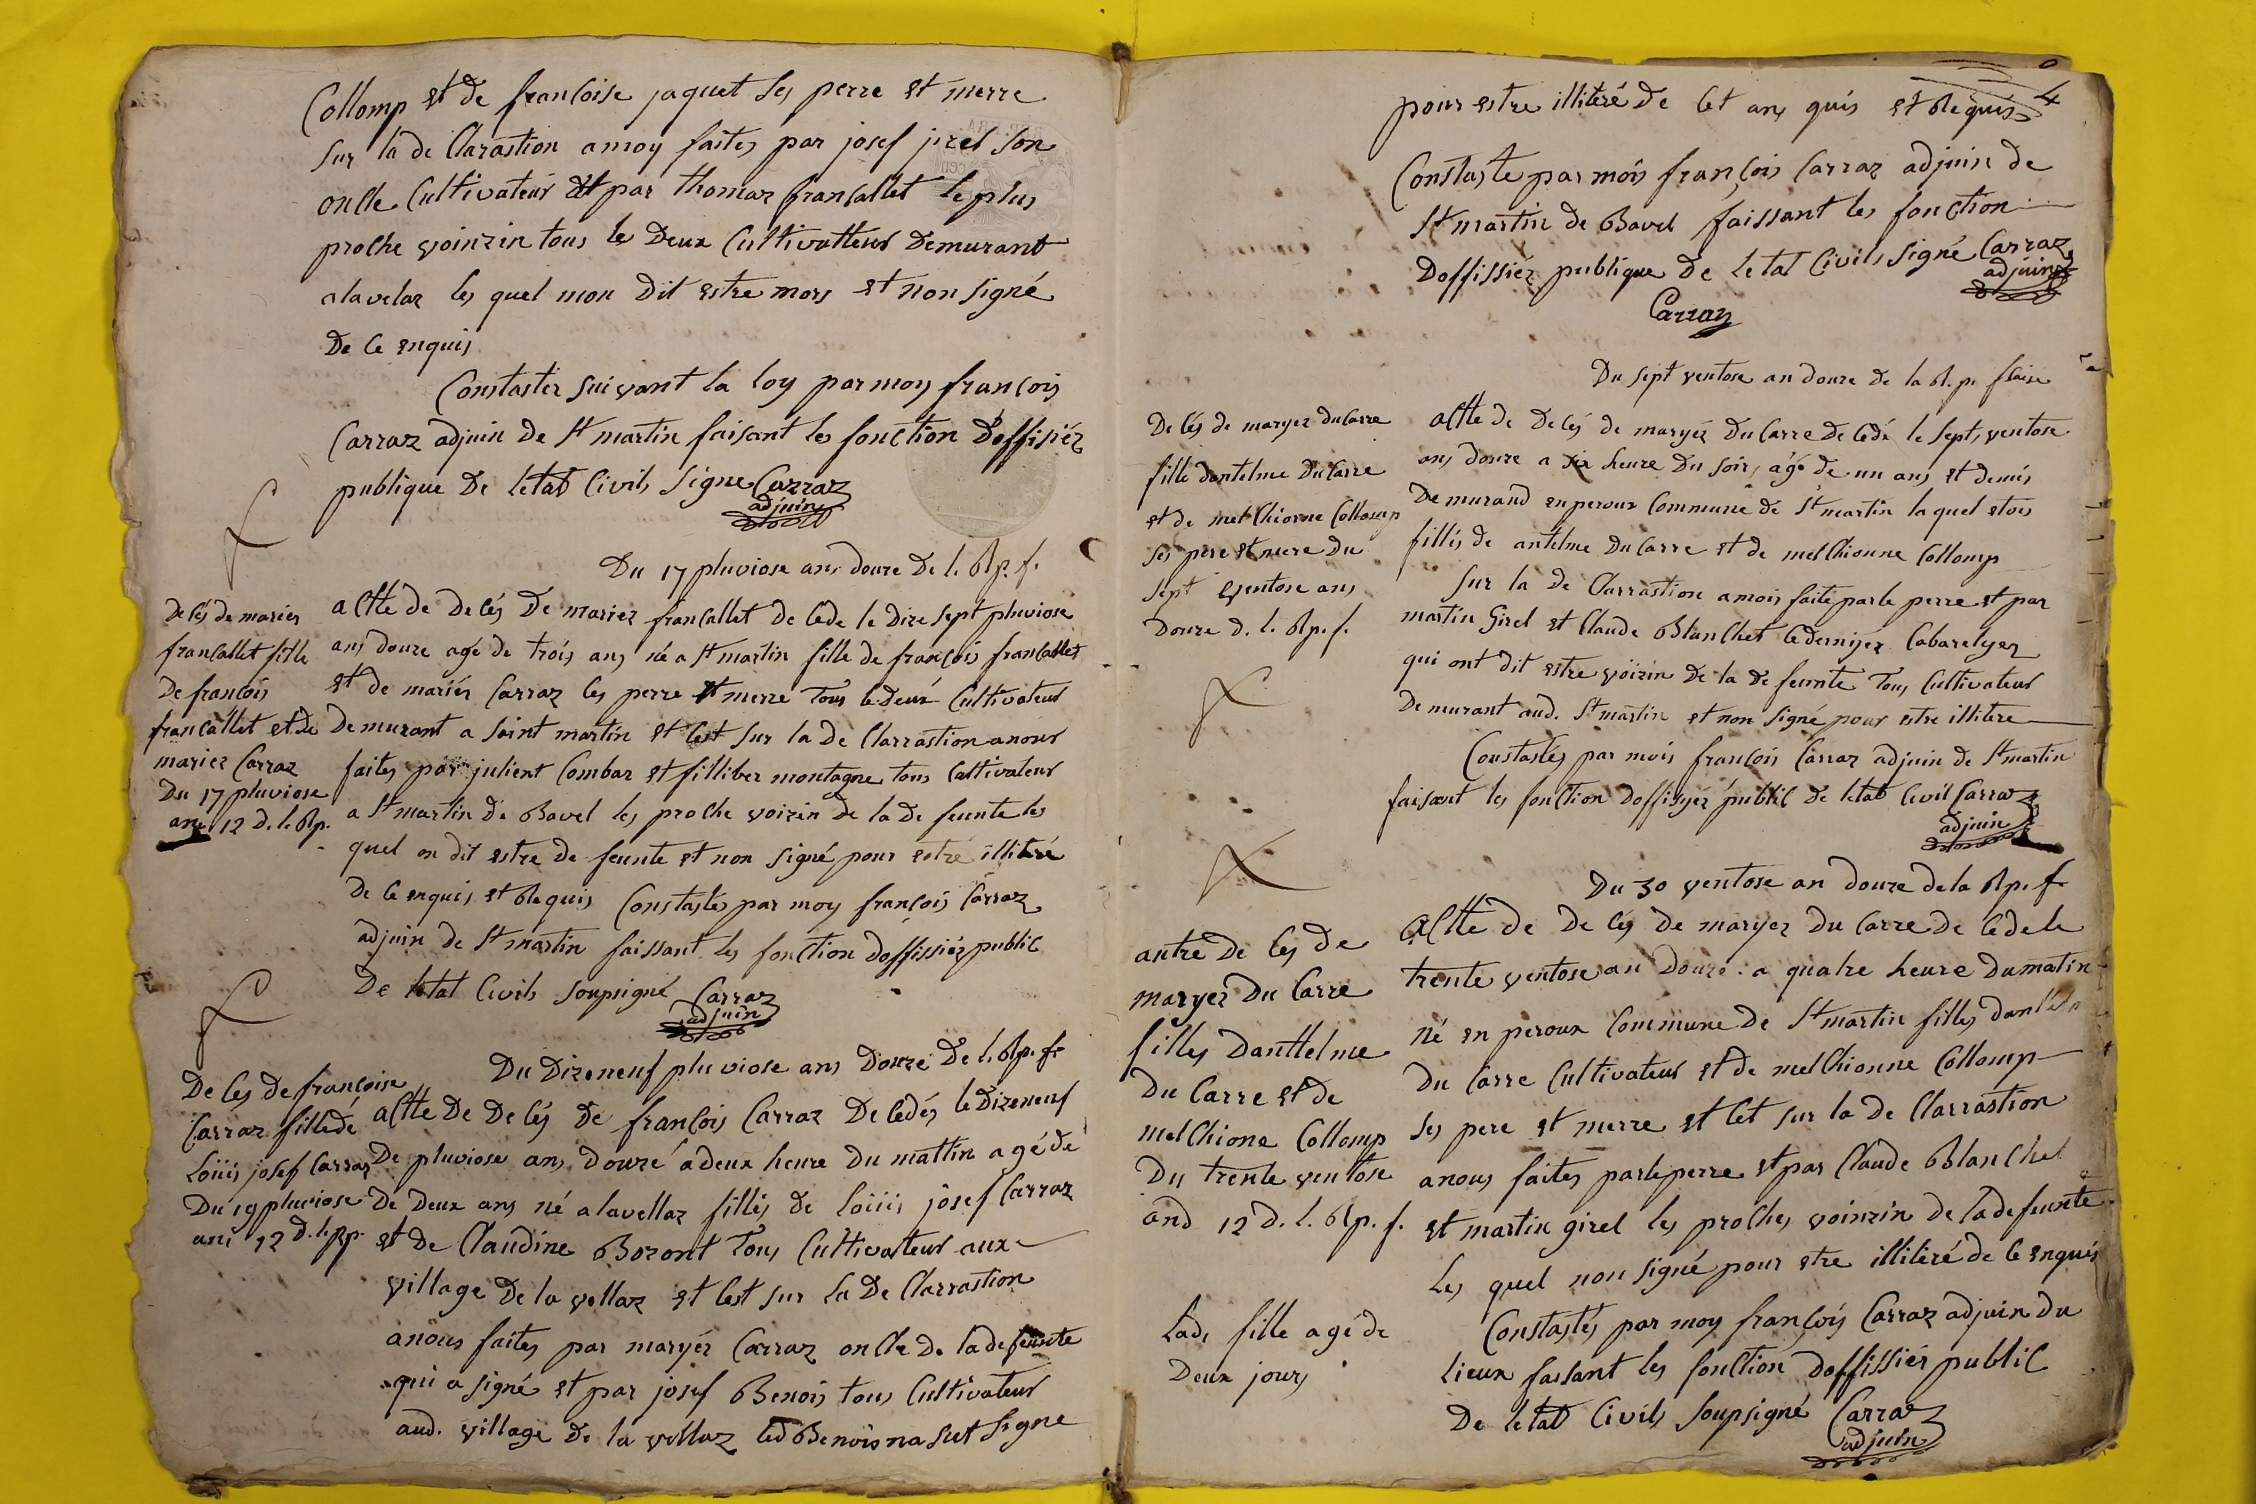 Collomp et de françoise jaquet ses perre et merre
sur la de Clarastion a moy faites par josef jirel son
oncle Cultivateur et par thomas françallet le plus
proche voinzin tous les deux Cultivatteur demurant
a lavelaz les quel mon dit estre mors et non signé
de ce enquis
Constaster suivant la loy par moy françois
Carraz adjuin de St martin faisant les fonction doffisiér
publique de letat Civils signe Carraz
adjuin
Du 17 pluviose ans douze de l. Rp. f.
decés de mariez
françallet fille
de françois
françallet et de
mariez Carraz
Du 17 pluviose
ane 12 d. l. Rp.
actte de decés de mariez françallet decede le dize sept pluviose
ans douze agé de trois ans né a St martin fille de françois françallet
et de mariéz Carraz les perre et merre tous le deux Cultivateur
demurant a saint martin et cest sur la de Clarrastion a nous
faites par julient Combaz et filliber montagne tous Cultivateur
a St martin de Bavel les proche voizin de la de feunte les
quel on dit estre de feunte et non signé pour estré illitéré
de ce enquis et Requis Constastés par moy françois Carraz
adjuin de St martin faissant les fonction doffissiéz public
de letat Civils soupsigné Carraz
adjuin
Du Dizeneuf pluviose ans Douze de l. Rp. f.
De ces de françoise
Carraz fille de
Loüis josef Carraz
Du 19 pluviose
ane 12 d. l. Rp.
actte de decés de françois Carraz decedés le dizeneuf
de pluviose ans douzé a deux heure du mattin agé de
de deux ans né a lavellaz fillés de loüis josef Carraz
et de Claudine Bozont tous Cultivateur aux
village de la vellaz et cest sur la de Clarrastion
a nous faites par maryéz Carraz oncle de la de feunte
qui a signé et par josef Benois tous Cultivateur
aud. village de la vellaz led Benois na suet signe
4
pour estre illitéré de Cet ans quis et Requis
Constaste par mois françois Carraz adjuin de
St martin de Bavel faissant les fonction
doffissiéz publique de letat Civils signé Carraz
adjuin
Carraz
Du sept ventose an douze de la R. p. fsaise
De cés de maryez ducarre
fille dantelme Ducarre
et de melChionne Collomp
ses pere et mere du
sept ventose ans
Douze d. l. Rp. f.
actte de decés de maryéz DuCarre decedé le sept ventose
ans douze a six heure du soir, agé de un ans et demis
demurand en peroux Commune de St martin la quel et ois
fillés de antelme DuCarre et de melChionne Collomp
sur la de Clarrastion a mois faite par le perre et par
martin Girel et Claude Blanchet ce dernijer Cabaretyez
qui ont dit estre voizin de la de feunte tous Cultivateur
demurant aud. St martin et non signé pour estre illitere
Constastés par mois françois Carraz adjuin de St martin
faisant les fonction doffisyéz public de letat Civil Carraz
adjuin
Du 30 ventose an douze de la Rp. f.
autre de ces de
maryez Du Carre
filles Danttelme
Du Carre et de
melChione Collomp
Du trente ventose
and 12 d. l. Rp. f.
Lade fille agé de
Deux jours
Actte de de cés de maryez du Carre de cede le
trente ventose an Douze. a quatre heure Du matin
né en peroux Commune de St martin filles
Du Carre Cultivateur et de melChionne Collomp
ses pere et merre et Cet sur la de Clarrastion
a nous faites par le perre et par Claude Blanchet
et martin girel les proches voinzin de la de feunte
Les quel non signé pour etre illitéré de ce enquis
Constastés par moy françois Carraz adjuin du
Lieux faisant les fonction doffissiér public
De letat Civils soupsigné Carraz
adjuin